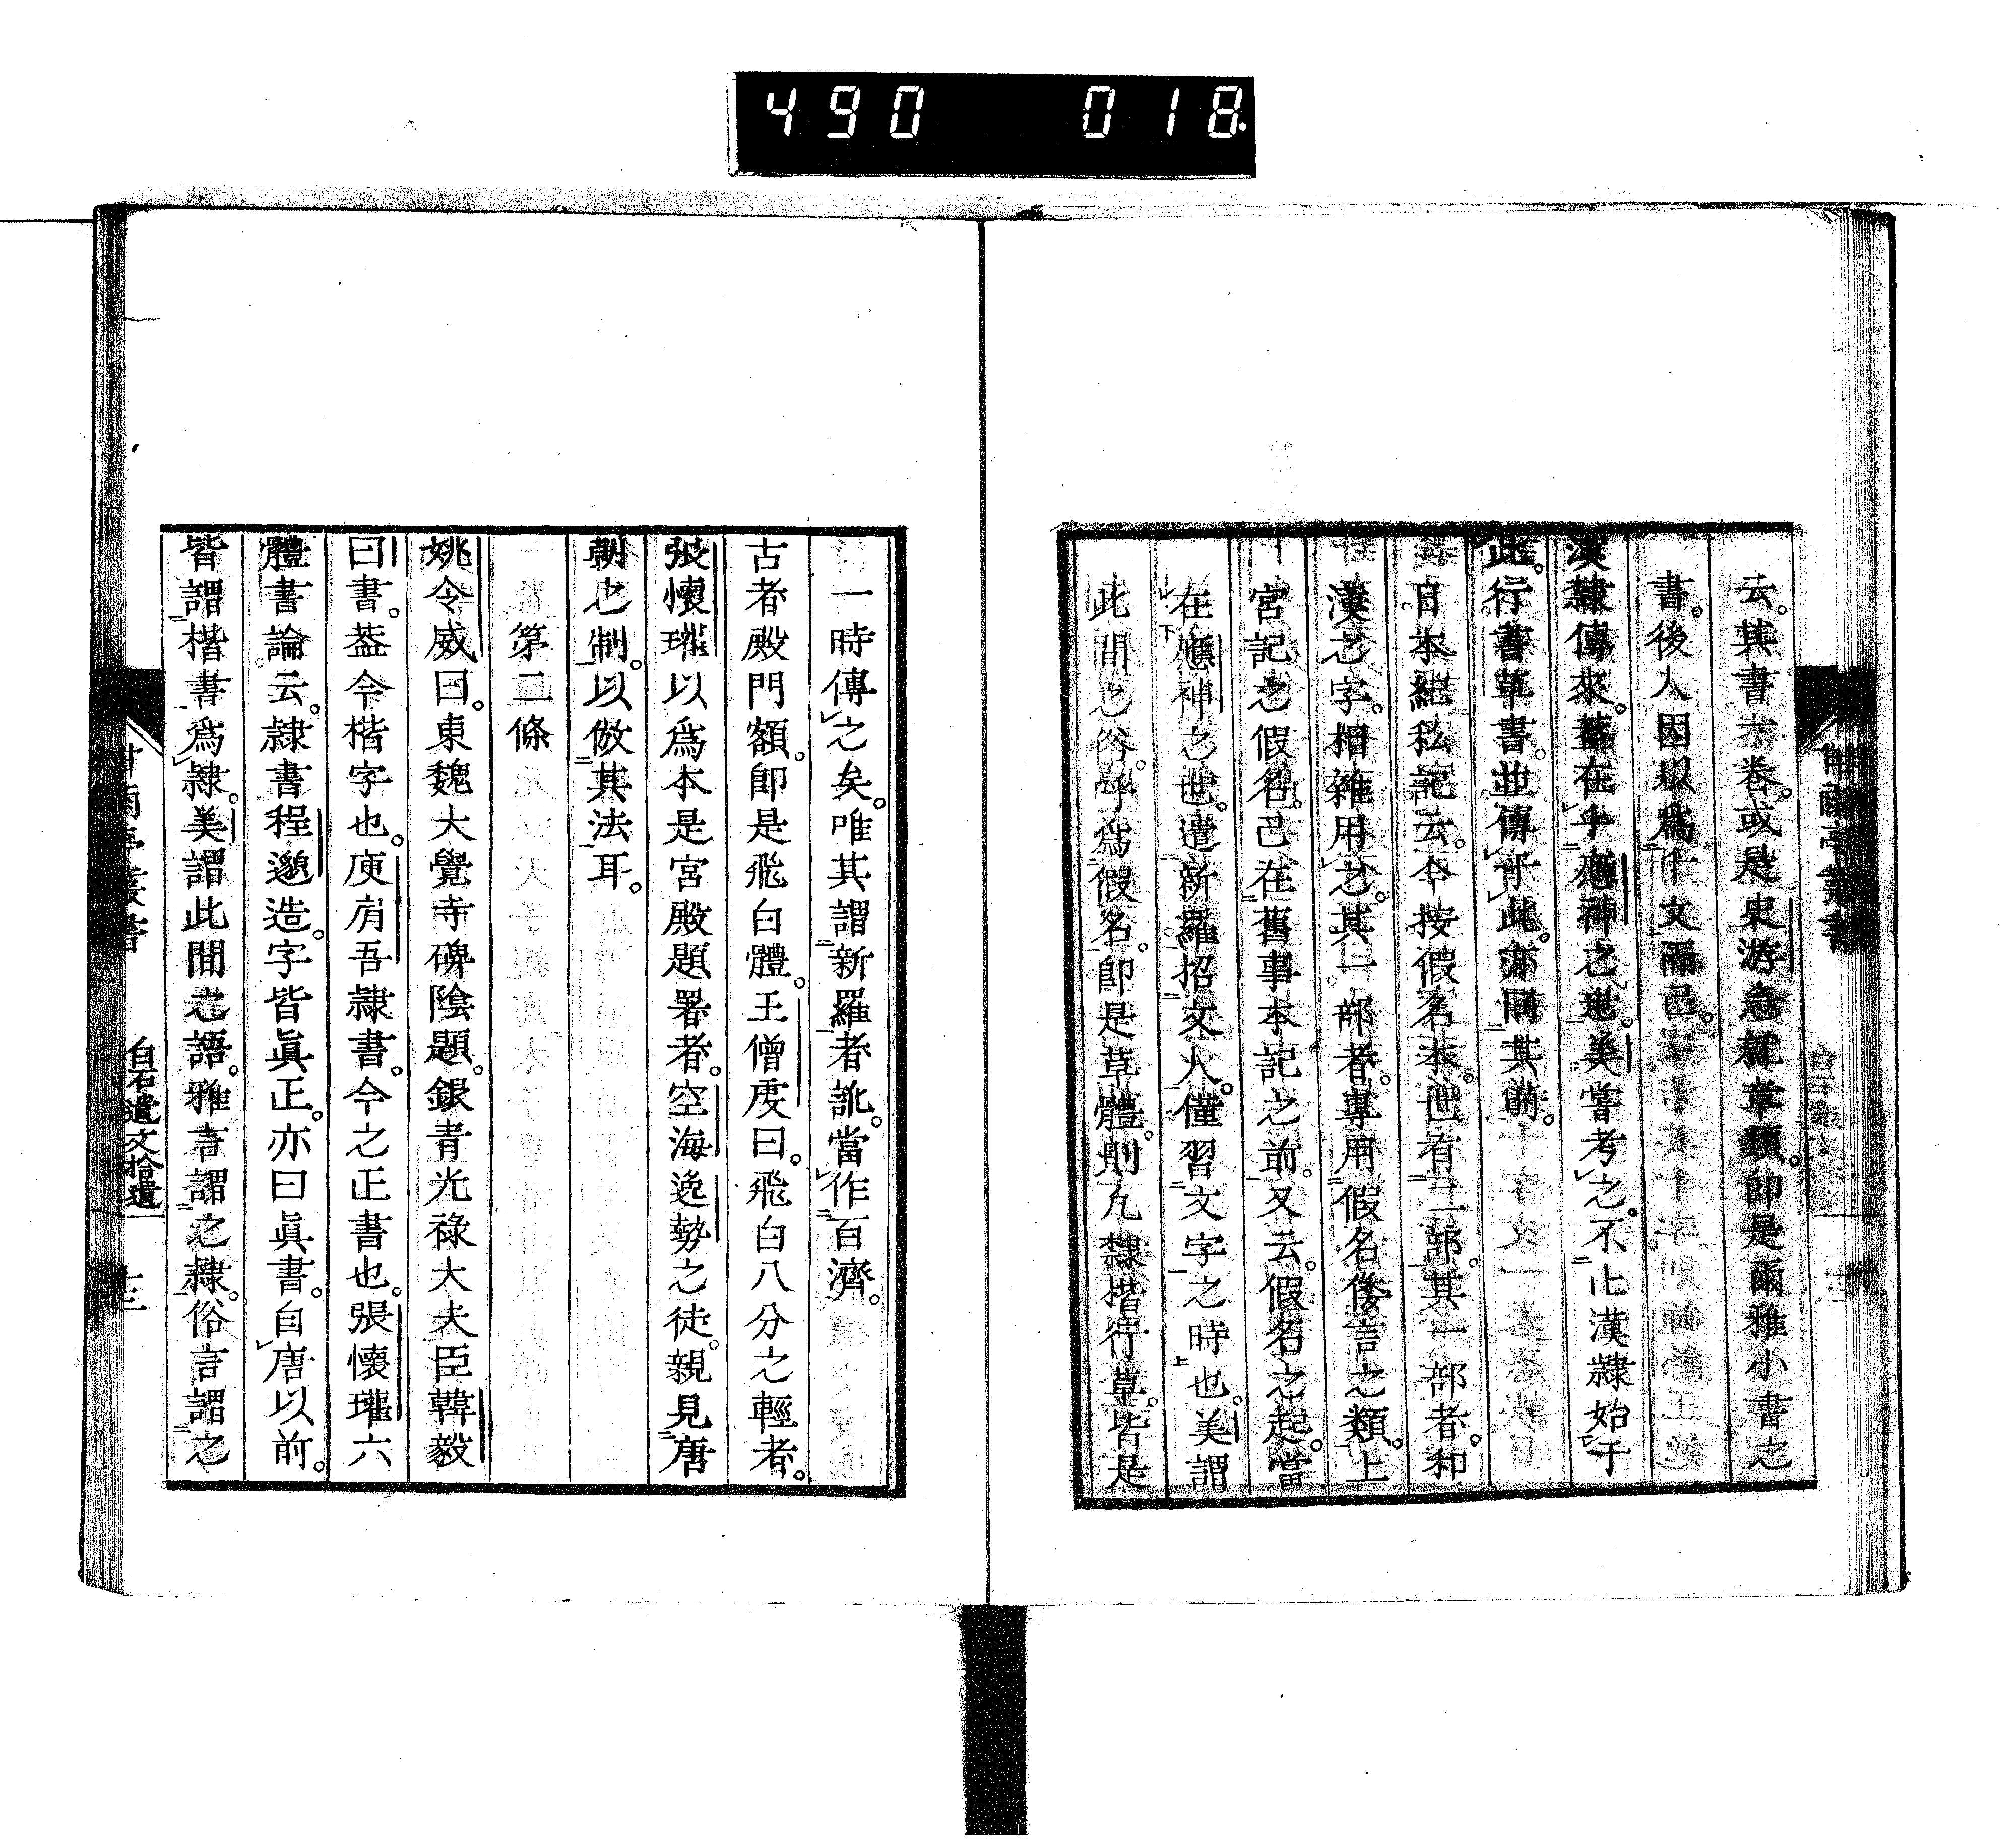 490 018
云。其書六卷。或是史游急就章類。卽是爾雅小書之
書。後人因以爲千文而已。
漢隸傳來。葢在乎應神之世。美嘗考之。不止漢隸始于
此。行書草書。並傳于此。亦同其萌。
日本紀私記云。今按假名本。世有二部。其一部者。和
漢之字。相雜用之。其一部者。專用假名倭言之類。上
宮記之假名。已在舊事本記之前。又云。假名之起。當
在應神之世。遣新羅招文人。僅習文字之時也。美謂
此間之俗。呼爲假名。卽是草體。則凡隸楷行草。皆是
一時傳之矣。唯其謂新羅者訛。當作百濟。
古者殿門額。卽是飛白體。王僧虔曰。飛白八分之輕者。
張懷瓘以爲本是宮殿題署者。空海逸勢之徒。親見唐
朝之制。以倣其法耳。
第二條
姚令威曰。東魏大覺寺碑陰題。銀青光祿大夫臣韓毅
曰書。葢今楷字也。庾肩吾隸書。今之正書也。張懷瓘六
體書論云。隸書程邈造。字皆眞正。亦曰眞書。自唐以前。
皆謂楷書爲隸。美謂此間之語。雅言謂之隸。俗言謂之
甘雨亭叢書 白石遺文拾遺 十三